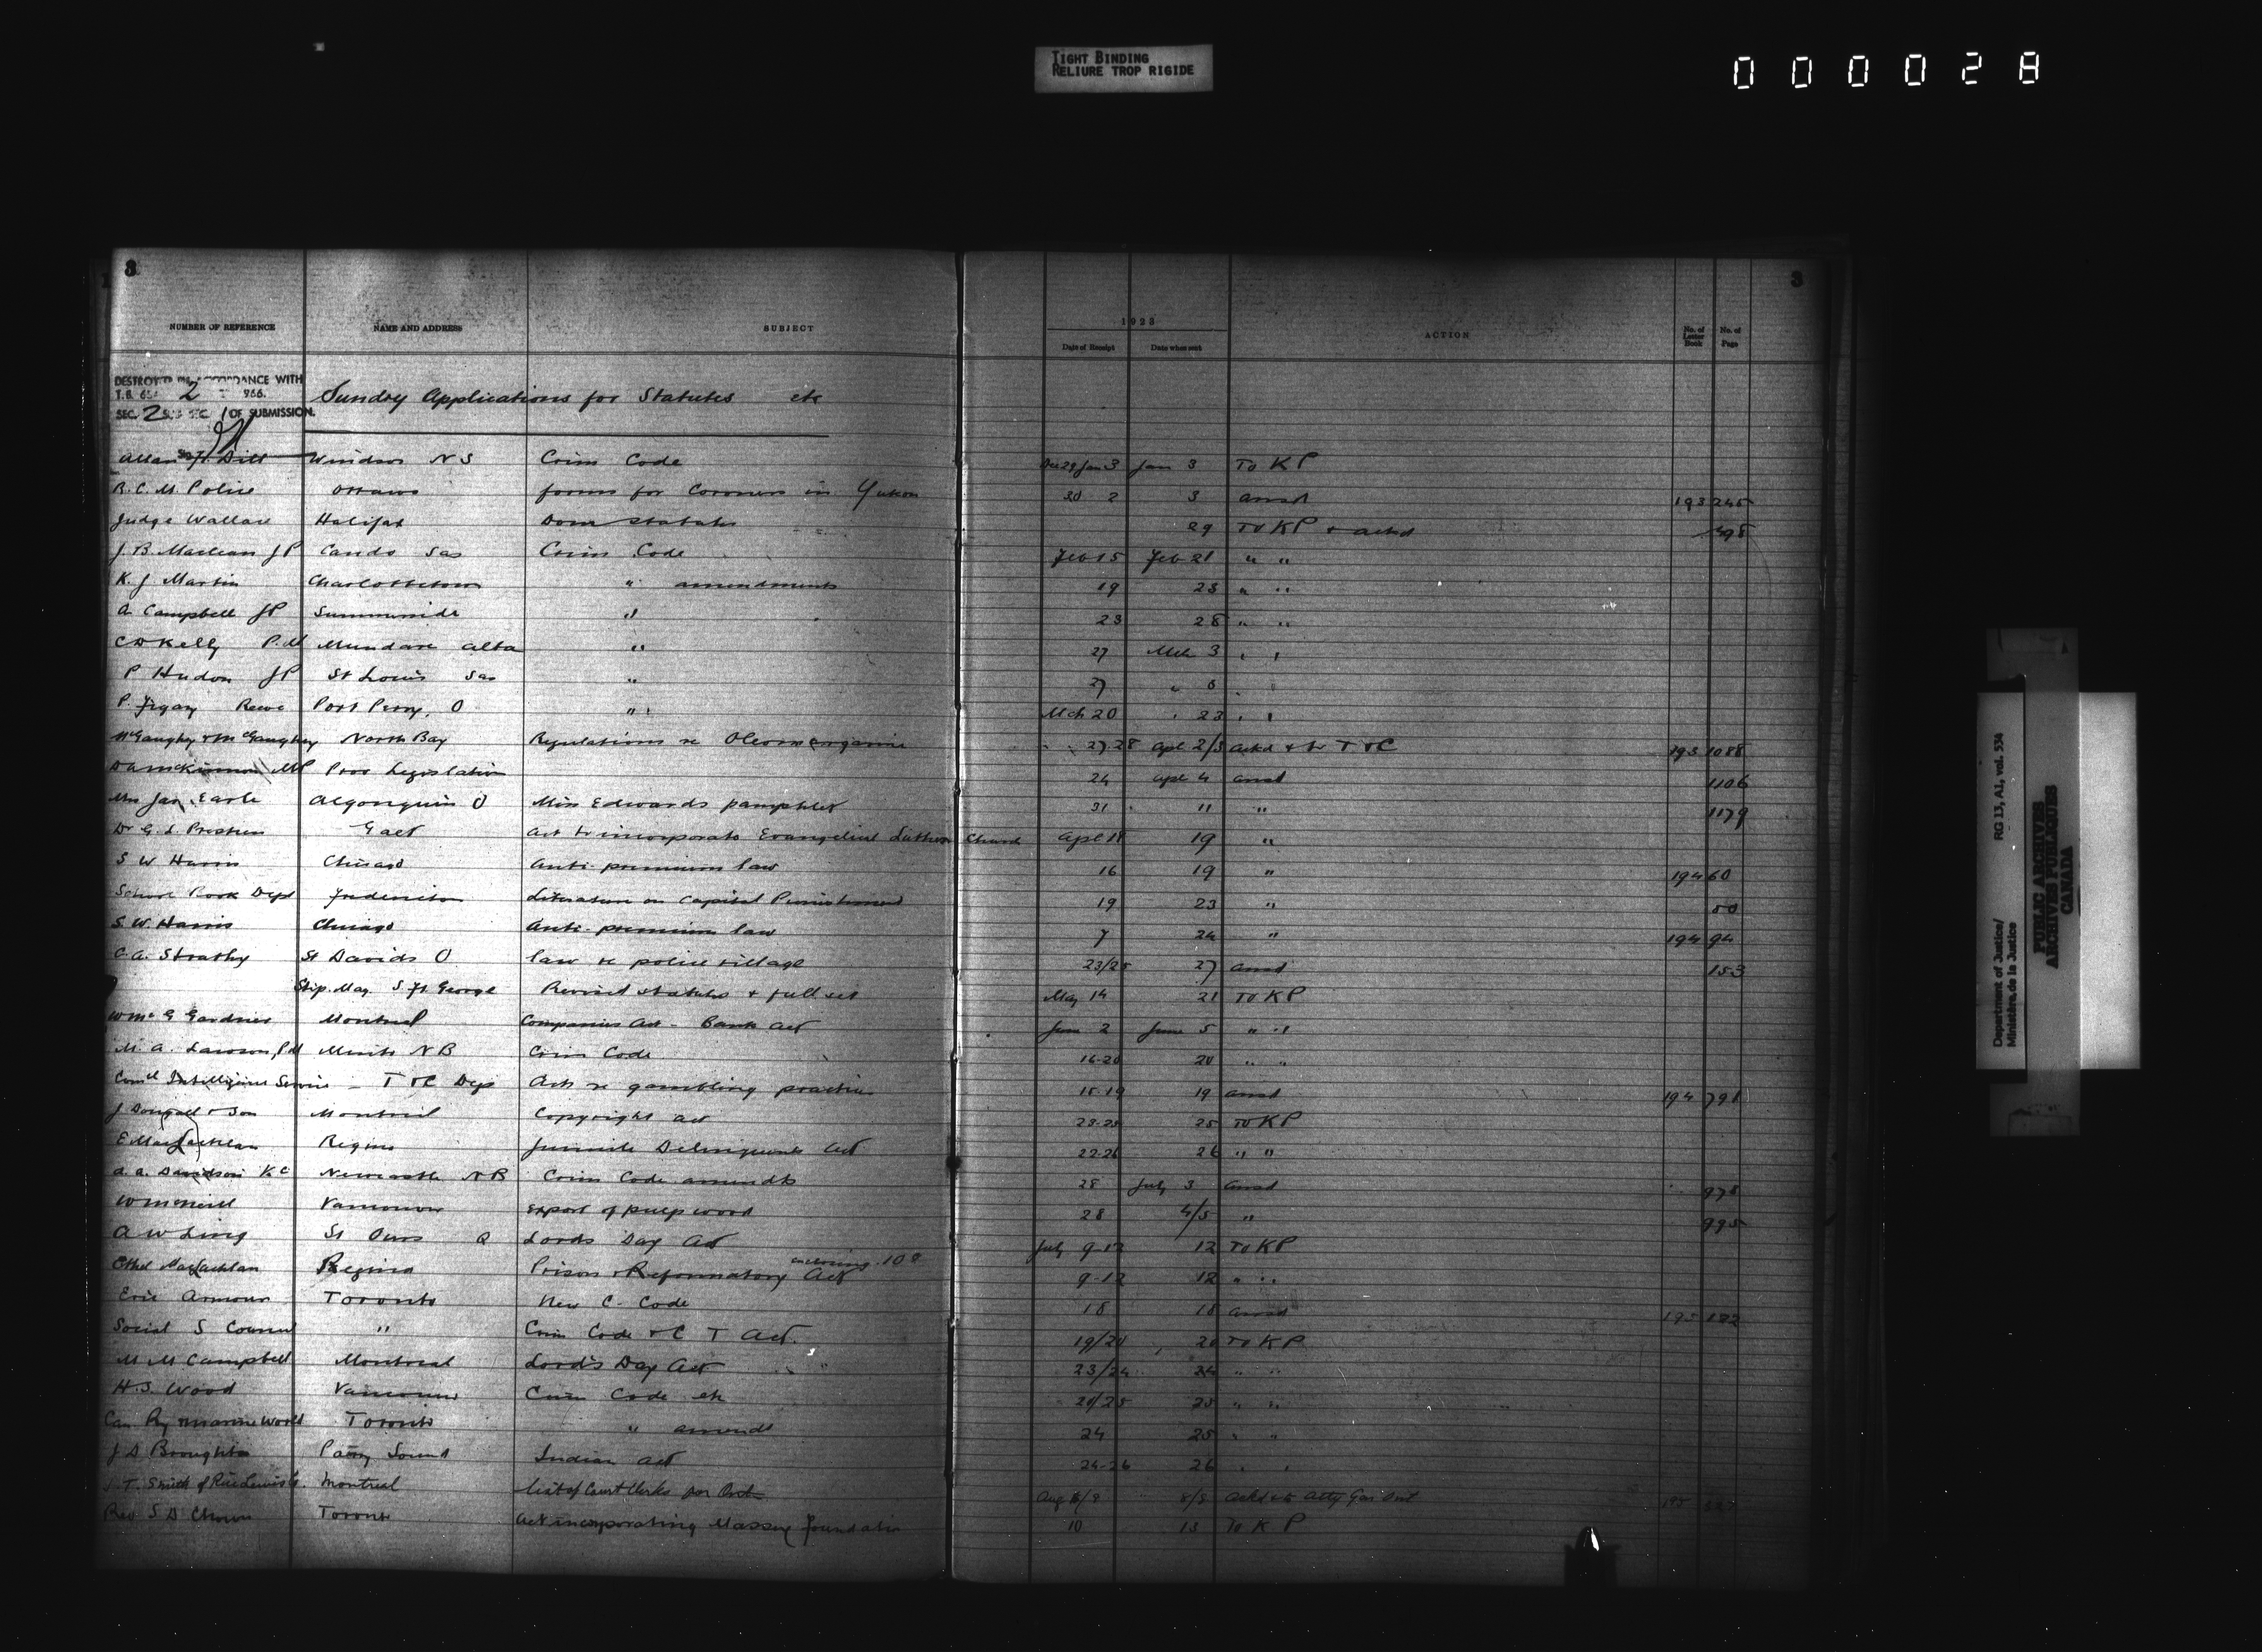 TIGHT BINDING
RELIURE TROP RIGIDE
000028
3
3
NUMBER OF REFERENCE NAME AND ADDRESS SUBJECT 1923 ACTION No. of Letter Book No. of Page
Date of Receipt Date when sent
DESTROYED IN ACCORDANCE WITH
T.B. 2 966.
SEC. 2 SUB SEC. 1 OF SUBMISSION.
Sundry Applications for Statutes etc
Allan Dill Windsor N S Crim Code Dec 29 Jan 3 Jan 3 To K P
R. C. M. Police Ottawa forms for Coroners in Yukon 30 2 3 ansd 193 245
Judge Wallace Halifax Dom Statutes 29 To KP + ackd 498
J. B. Maclean JP Cando Sas Crim Code Feb 15 Feb 21 " "
K. J. Martin Charlottetown " amendments 19 23 " "
A Campbell JP Summerside " 23 28 " "
C D Kelly P.M Mundare Alta " 27 Mch 3 " "
P Hudon JP St Louis Sas " 27 " 6 " "
P. Reeve Port Perry, O " " Mch 20 " 23 " "
McGaughey & McGaughey North Bay Regulations re Oleomargarine 27 28 Apl 2/3 ackd + to T & C 193 1088
D A McKinnon MP Prov Legislation 24 Apl 4 ansd 1106
Mrs Jas. Earle Algonquin O Miss Edwards pamphlet 31 11 " 1179
Dr G. L. Galt Act to incorporate Evangelical Lutheran Church Apl 18 19 "
S W Harris Chicago Anti-premium law 16 19 " 194 60
School Book Dept Fredericton Literature on Capital Punishment 19 23 "
S. W. Harris Chicago Anti-premium law 7 24 " 194 94
C. A. Strathy St Davids O law re police village 23/25 27 ansd 153
Stip. Mag. S. Ft. George Revised Statutes + full set May 14 21 To K P
W Mc G Gardner Montreal Companies Act - Bank Act June 2 June 5 " "
M. A. Lawson, P M Minto NB Crim Code 16-20 20 " "
Comcl Intelligence Service - T & C Dept Acts re gambling practices 15-19 19 ansd 194 791
J Dougall & Son Montreal Copyright Act 23-25 25 To KP
E MacLachlan Regina Juvenile Delinquents Act 22-26 26 " "
A. A. Davidson K C Newcastle N B Crim Code amendts 28 July 3 ansd 975
W McNeill Vancouver Export of pulpwood 28 4/5 " 995
A W Ling St Ours Q Lords Day Act July 9-12 12 To KP
Ethel MacLachlan Regina Prison & Reformatory Act enclosing 10c 9-12 12 " "
Eric Armour Toronto New C. Code 18 18 ansd 195 182
Social S Council " Crim Code & C T Act. 19/20 20 To K P
M M Campbell Montreal Lord's Day Act 23/24 24 " "
H. S. Wood Vancouver Crim Code etc 20/25 25 " "
Can Ry & Marine World Toronto " amends 24 25 " "
J D Broughton Parry Sound Indian Act 24-26 26 " "
J. T. Smith of Rice Lewis Co. Montreal list of Court Clerks for Ont Aug 8/9 8/9 ackd & to Atty Gen Ont 195
Rev S D Chown Toronto Act incorporating Massey Foundation 10 13 To K P
Department of Justice/
Ministère de la Justice
RG 13, A1, vol. 534
PUBLIC ARCHIVES
ARCHIVES PUBLIQUES
CANADA